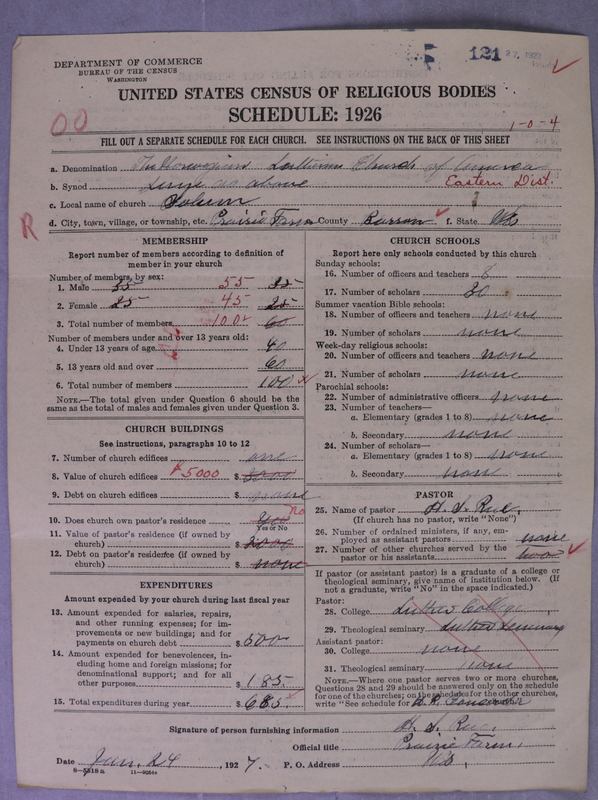 121
DEPARTMENT OF COMMERCE
BUREAU OF THE CENSUS
WASHINGTON
UNITED STATES CENSUS OF RELIGIOUS BODIES
SCHEDULE: 1926
00
1-0-4
FILL OUT A SEPARATE SCHEDULE FOR EACH CHURCH. SEE INSTRUCTIONS ON THE BACK OF THIS SHEET
a. Denomination The Norwegian Lutheran Church of America
b. Synod as above Eastern Dist.
c. Local name of church
R
d. City, town, village, or township, etc. Prairie Farm County Barron f. State
MEMBERSHIP
Report number of members according to definition of member in your church
Number of members, by sex:
1. Male 35 55 35
2. Female 25 45 25
3. Total number of members 100 60
Number of members under and over 13 years old:
4. Under 13 years of age 40
5. 13 years old and over 60
6. Total number of members 100
NOTE.—The total given under Question 6 should be the same as the total of males and females given under Question 3.
CHURCH BUILDINGS
See instructions, paragraphs 10 to 12
7. Number of church edifices one
8. Value of church edifices $5000 $
9. Debt on church edifices $
10. Does church own pastor's residence no
Yes or No
11. Value of pastor's residence (if owned by church) $
12. Debt on pastor's residence (if owned by church) $ none
EXPENDITURES
Amount expended by your church during last fiscal year
13. Amount expended for salaries, repairs, and other running expenses; for improvements or new buildings; and for payments on church debt $ 500
14. Amount expended for benevolences, including home and foreign missions; for denominational support; and for all other purposes $ 185
15. Total expenditures during year $ 685
CHURCH SCHOOLS
Report here only schools conducted by this church
Sunday schools:
16. Number of officers and teachers
17. Number of scholars 30
Summer vacation Bible schools:
18. Number of officers and teachers none
19. Number of scholars none
Week-day religious schools:
20. Number of officers and teachers none
21. Number of scholars none
Parochial schools:
22. Number of administrative officers none
23. Number of teachers—
a. Elementary (grades 1 to 8) none
b. Secondary none
24. Number of scholars—
a. Elementary (grades 1 to 8) none
b. Secondary none
PASTOR
25. Name of pastor
(If church has no pastor, write "None")
26. Number of ordained ministers, if any, employed as assistant pastors none
27. Number of other churches served by the pastor or his assistants two
If pastor (or assistant pastor) is a graduate of a college or theological seminary, give name of institution below. (If not a graduate, write "No" in the space indicated.)
Pastor:
28. College Luther College
29. Theological seminary Luther Seminary
Assistant pastor:
30. College none
31. Theological seminary none
NOTE.—Where one pastor serves two or more churches, Questions 28 and 29 should be answered only on the schedule for one of the churches; on the schedules for the other churches, write "See schedule for
Signature of person furnishing information
Official title Prairie Farm,
Date Jan. 24, 1927. P. O. Address